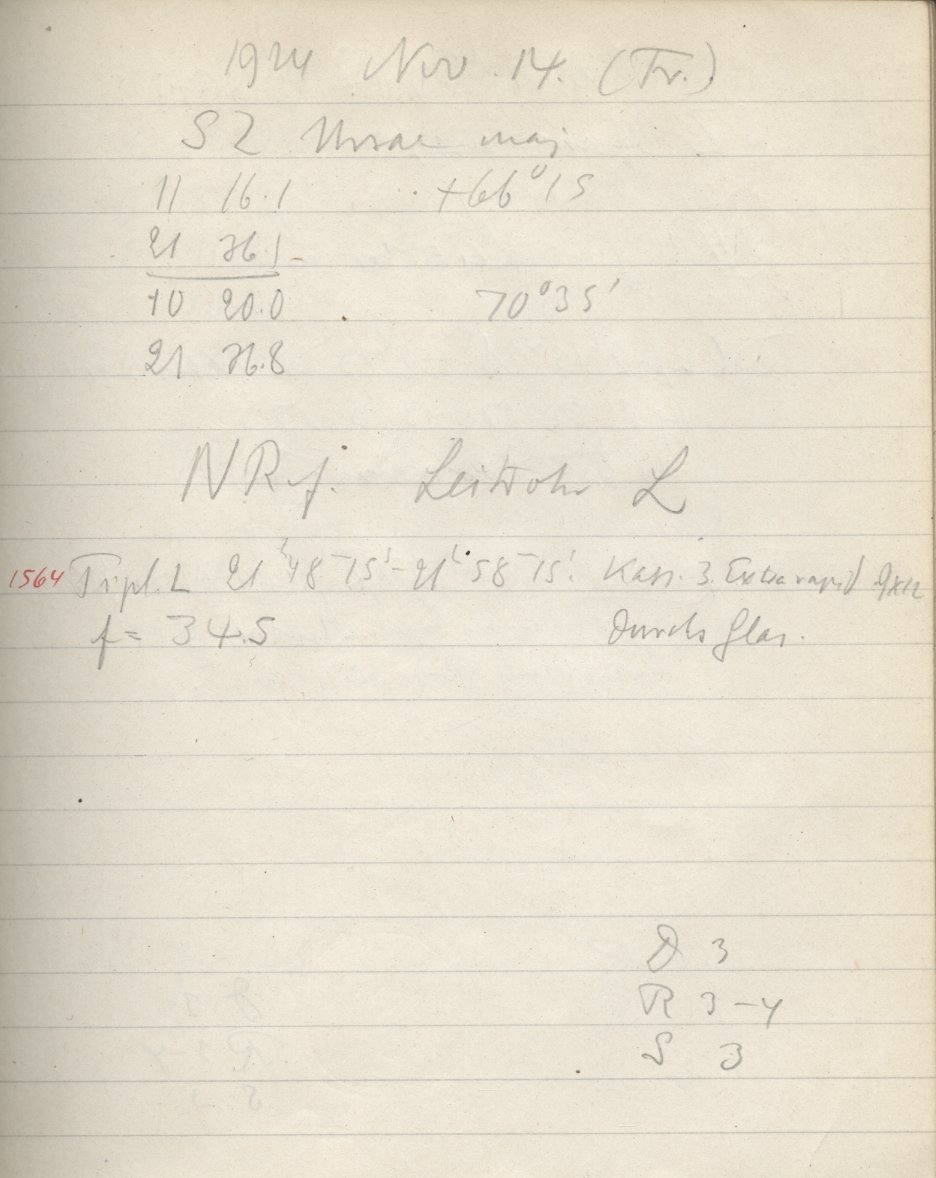 1924 Nov. 14. (Fr.)
SZ Ursae maj
11 16.1 +66°15
21 36.1
10 20.0 70°35'
21 36.8
NRf. Leitrohr L
1564 Tripl. L 21h48m15s–21h58m15s. Kass. 3. Extrarapid 9x12
f = 34.5 durchs Glas.
D 3
R 3–4
S 3